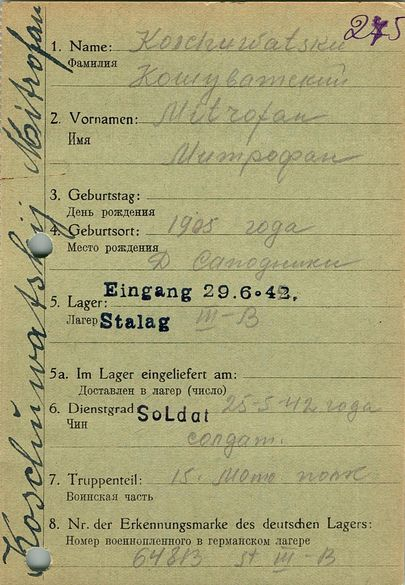 275
1. Name: Koschuwatski
Фамилия
Кошуватский
2. Vornamen: Mitrofan
Имя
Митрофан
3. Geburtstag:
День рождения
4. Geburtsort: 1905 года
Место рождения
Д Саподники
Eingang 29.6.42.
5. Lager: III-B
Лагер Stalag
5a. Im Lager eingeliefert am:
Доставлен в лагер (число)
6. Dienstgrad: Soldat 25-5-42 года
Чин
солдат.
7. Truppenteil: 15. Мото полк
Воинская часть
8. Nr. der Erkennungsmarke des deutschen Lagers:
Номер военнопленного в германском лагере
St III-B
Koschuwatskij Mitrofan